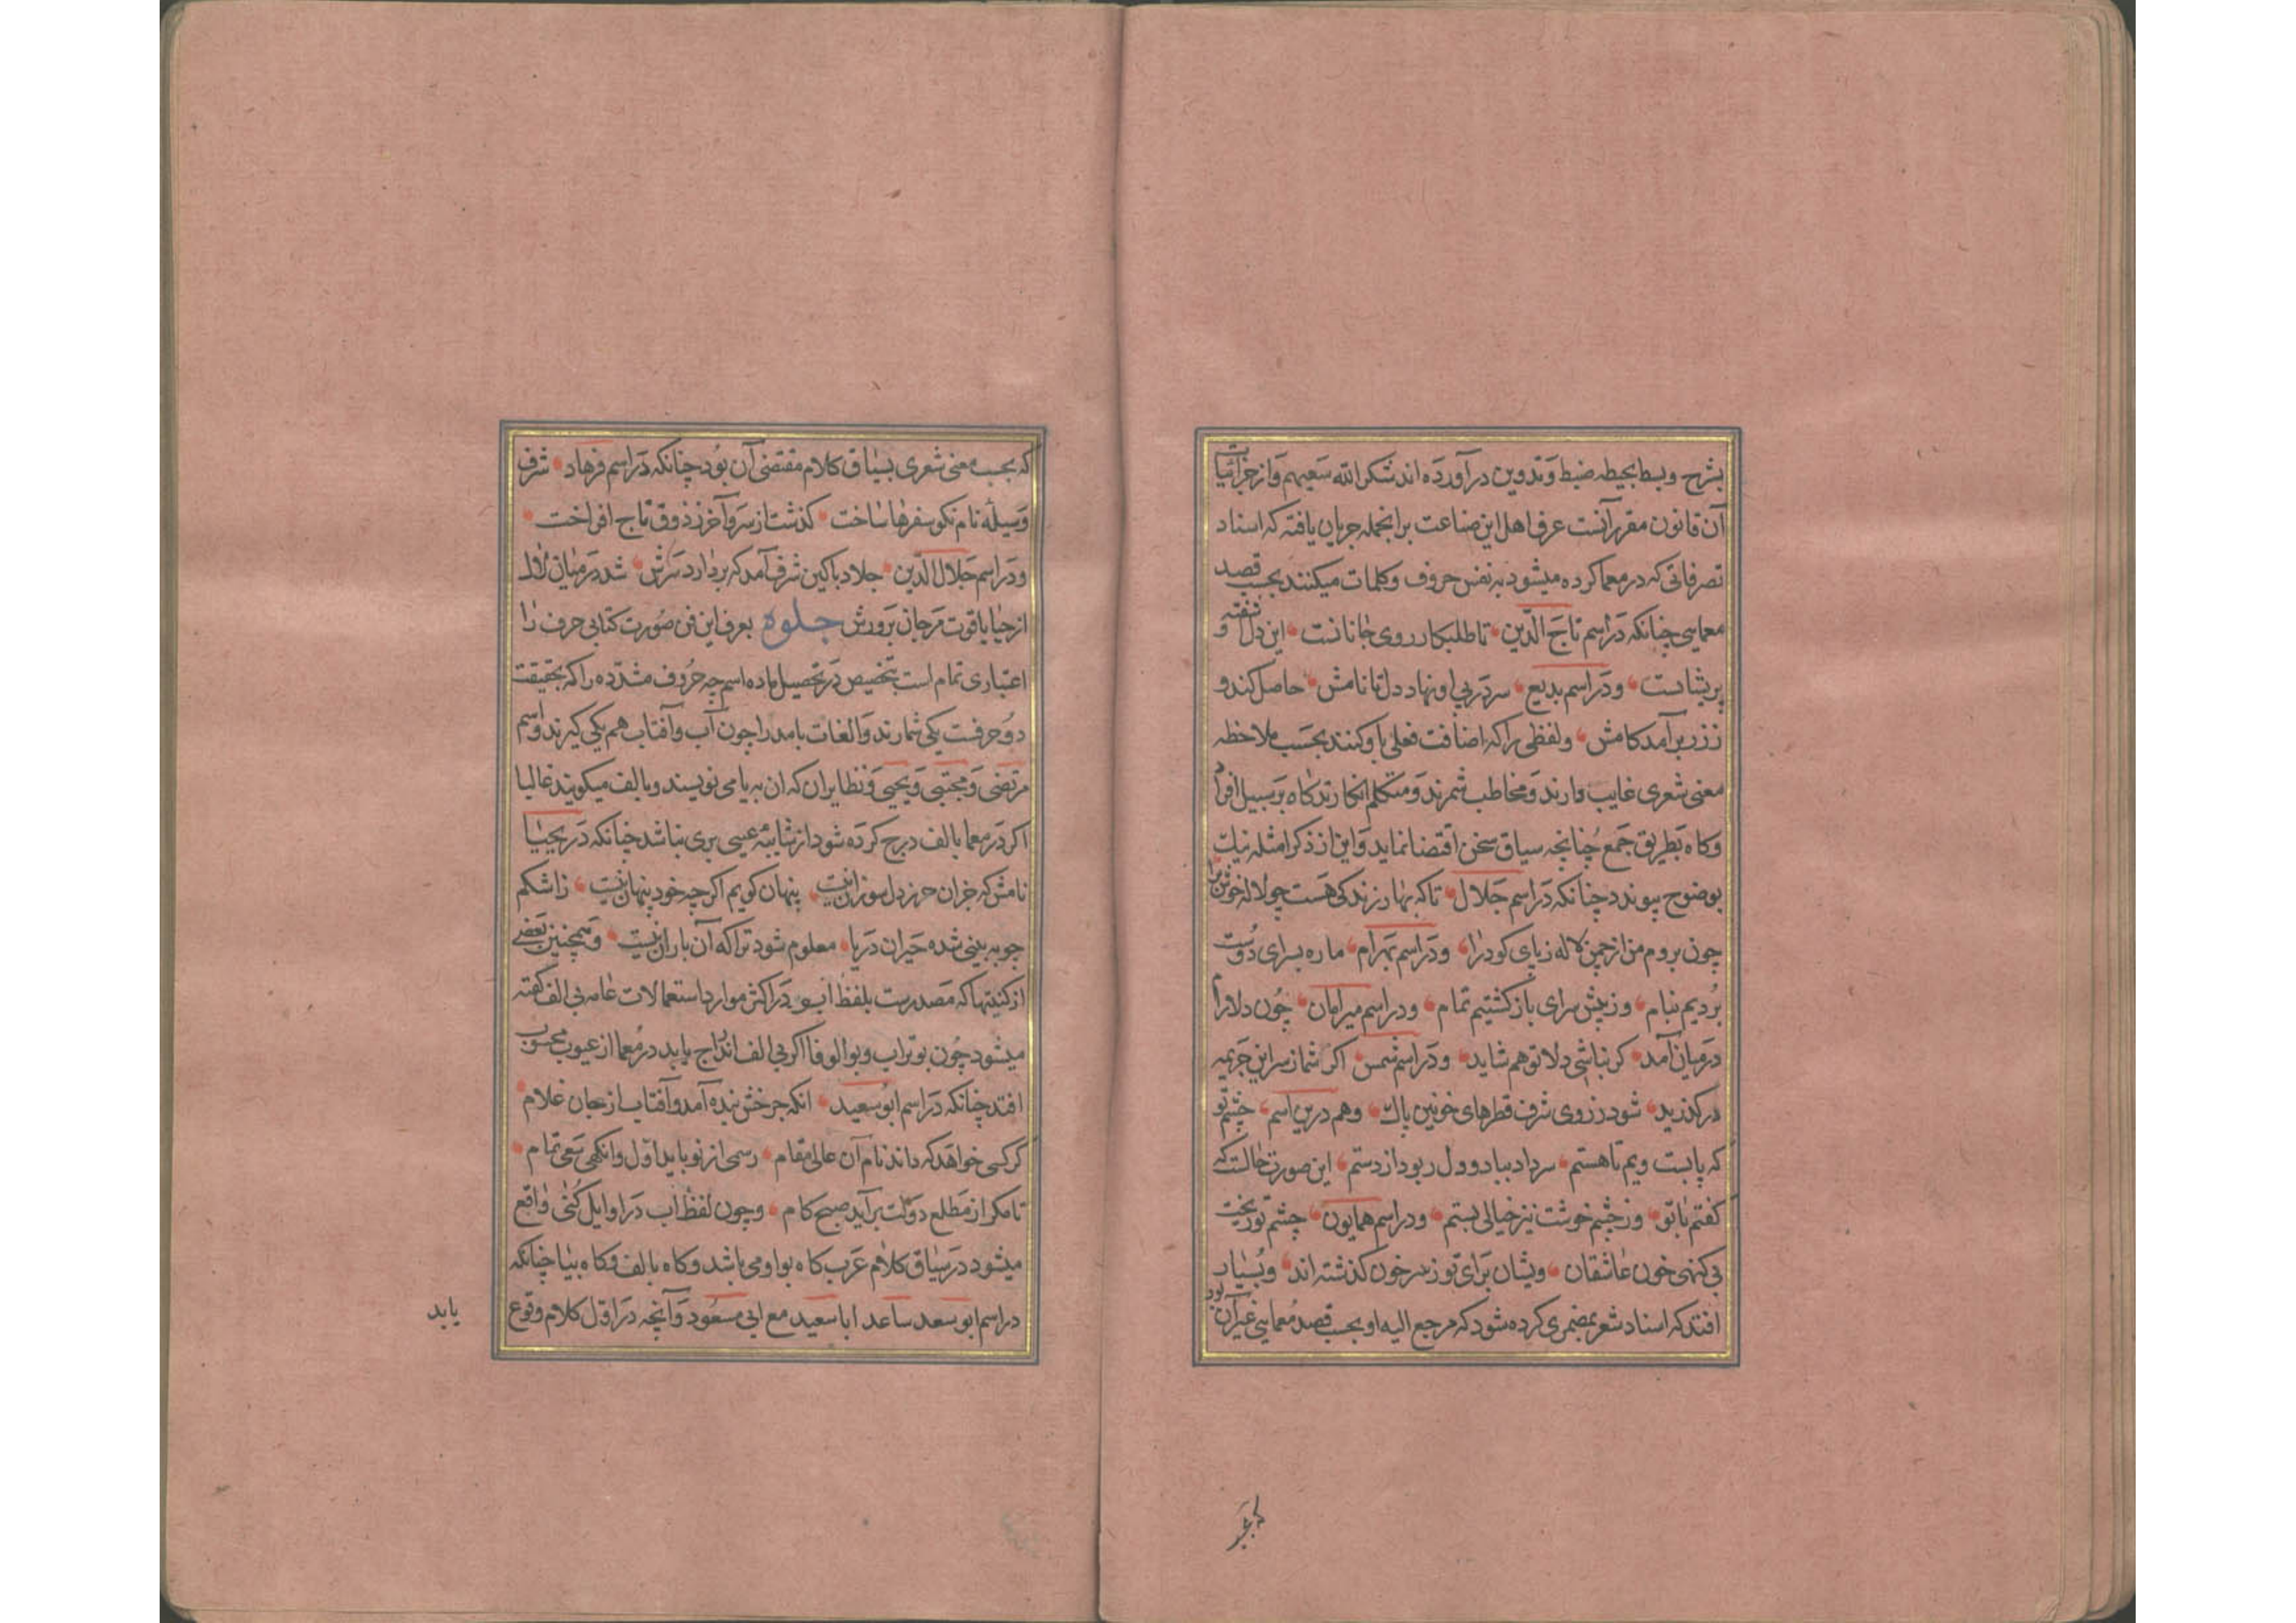 بشرح وبسط بحیطه ضبط وتدوین درآورده اند شکر الله سعیهم واز جزائیات
آن قانون مقرر آنست عرف اهل این صناعت برانجمله جریان یافته که اسناد
تصرفاتی که در معما کرده میشود به نفس حروف وکلمات میکنند بحسب قصد
معمایی چنانکه دراسم تاج الدین تا طلبکار روی جانانست این دل شفته و
پریشانست ودراسم بدیع سردرپی او نهاد دل تا نامش حاصل کند و
ززر برآمد کامش ولفظی را که اضافت فعلی باو کنند بحسب ملاحظه
معنی شعری غایب دارند ومخاطب شمرند ومتکلم انکارند کاه برسبیل افراد
وکاه بطریق جمع چنانچه سیاق سخن اقتضا نماید واین از ذکر امثله نیک
بوضوح پیوندد چنانکه دراسم جلال تا که بهار زندکی هست چو لاله خوش برا
چون بروم من از چمن لاله زپای کو درا ودراسم بهرام ما ره بسرای دوست
بردیم بنام وز پیش سرای باز کشتیم تمام ودراسم میرامان چون دلارام
درمیان آمد کر نباشی دلا تو هم شاید ودراسم شمس اکر شما ز سر این جریمه
درکذرید شود ز روی شرف قطرهای خونین پاک وهم درین اسم چشم تو
که پابست ویم تا هستم سرداد بباد ودل ربود از دستم این صورت حالست که
کفتم با تو وز چشم خوشت نیز خیالی بستم ودراسم همایون چشم تو ریخت
بی کنهی خون عاشقان ویشان برای تو ز سر خون کذشته اند وبسیار
افتد که اسناد شعر بمضمری کرده شود که مرجع الیه او بحسب قصد معمایی غیر آن بود
که بحسب معنی شعری بسیاق کلام مقتضی آن بود چنانکه دراسم فرهاد شرف
وسیله نام نکو سفرها ساخت کذشت از سر وآخر ز ذوق تاج افراخت
ودراسم جلال الدین جلاد باکین شرف آمد که بردارد سرش شد درمیان لال
از حیا یاقوت مرجان پرورش جلوه بعرف این فن صورت کتابی حرف را
اعتباری تمام است بتخصیص در تحصیل ماده اسم چه حروف مشدده را که بحقیقت
دو حرفست یکی شمارند والفات بامد را چون آب وآفتاب هم یکی کیرند واسم
مرتضی ومجتبی ویحیی ونظایر ان که ان به یا می نویسند وبالف میکویند غالبا
اکر در معما بالف درج کرده شود از شایبه عیبی بری نباشد چنانکه در یحییا
نامش که جزان حرز دل سوزان نیست پنهان کویم اکرچه خود پنهان نیست زاشکم
چو به بینی شده حیران دریا معلوم شود ترا که آن باران نیست وهمچنین بعضی
از کنیتها که مصدرست بلفظ ابو در اکثر موارد استعمالات عامه بی الف کفته
میشود چون بوتراب وبوالوفا اکر بی الف اندراج یابد در معما از عیوب محسوب
افتد چنانکه دراسم ابوسعید انکه چرخش بنده آمد وآفتاب از جان غلام
کر کسی خواهد که داند نام آن عالی مقام رسمی از نو باید اول وانکهی سعی تمام
تا مکر از مطلع دولت برآید صبح کام وچون لفظ اب در اوایل کنی واقع
میشود در سیاق کلام عرب کاه بواو می باشد وکاه بالف وکاه بیا چنانکه
دراسم ابو سعد ساعد ابا سعید مع ابی مسعود وآنچه در اول کلام وقوع
یابد